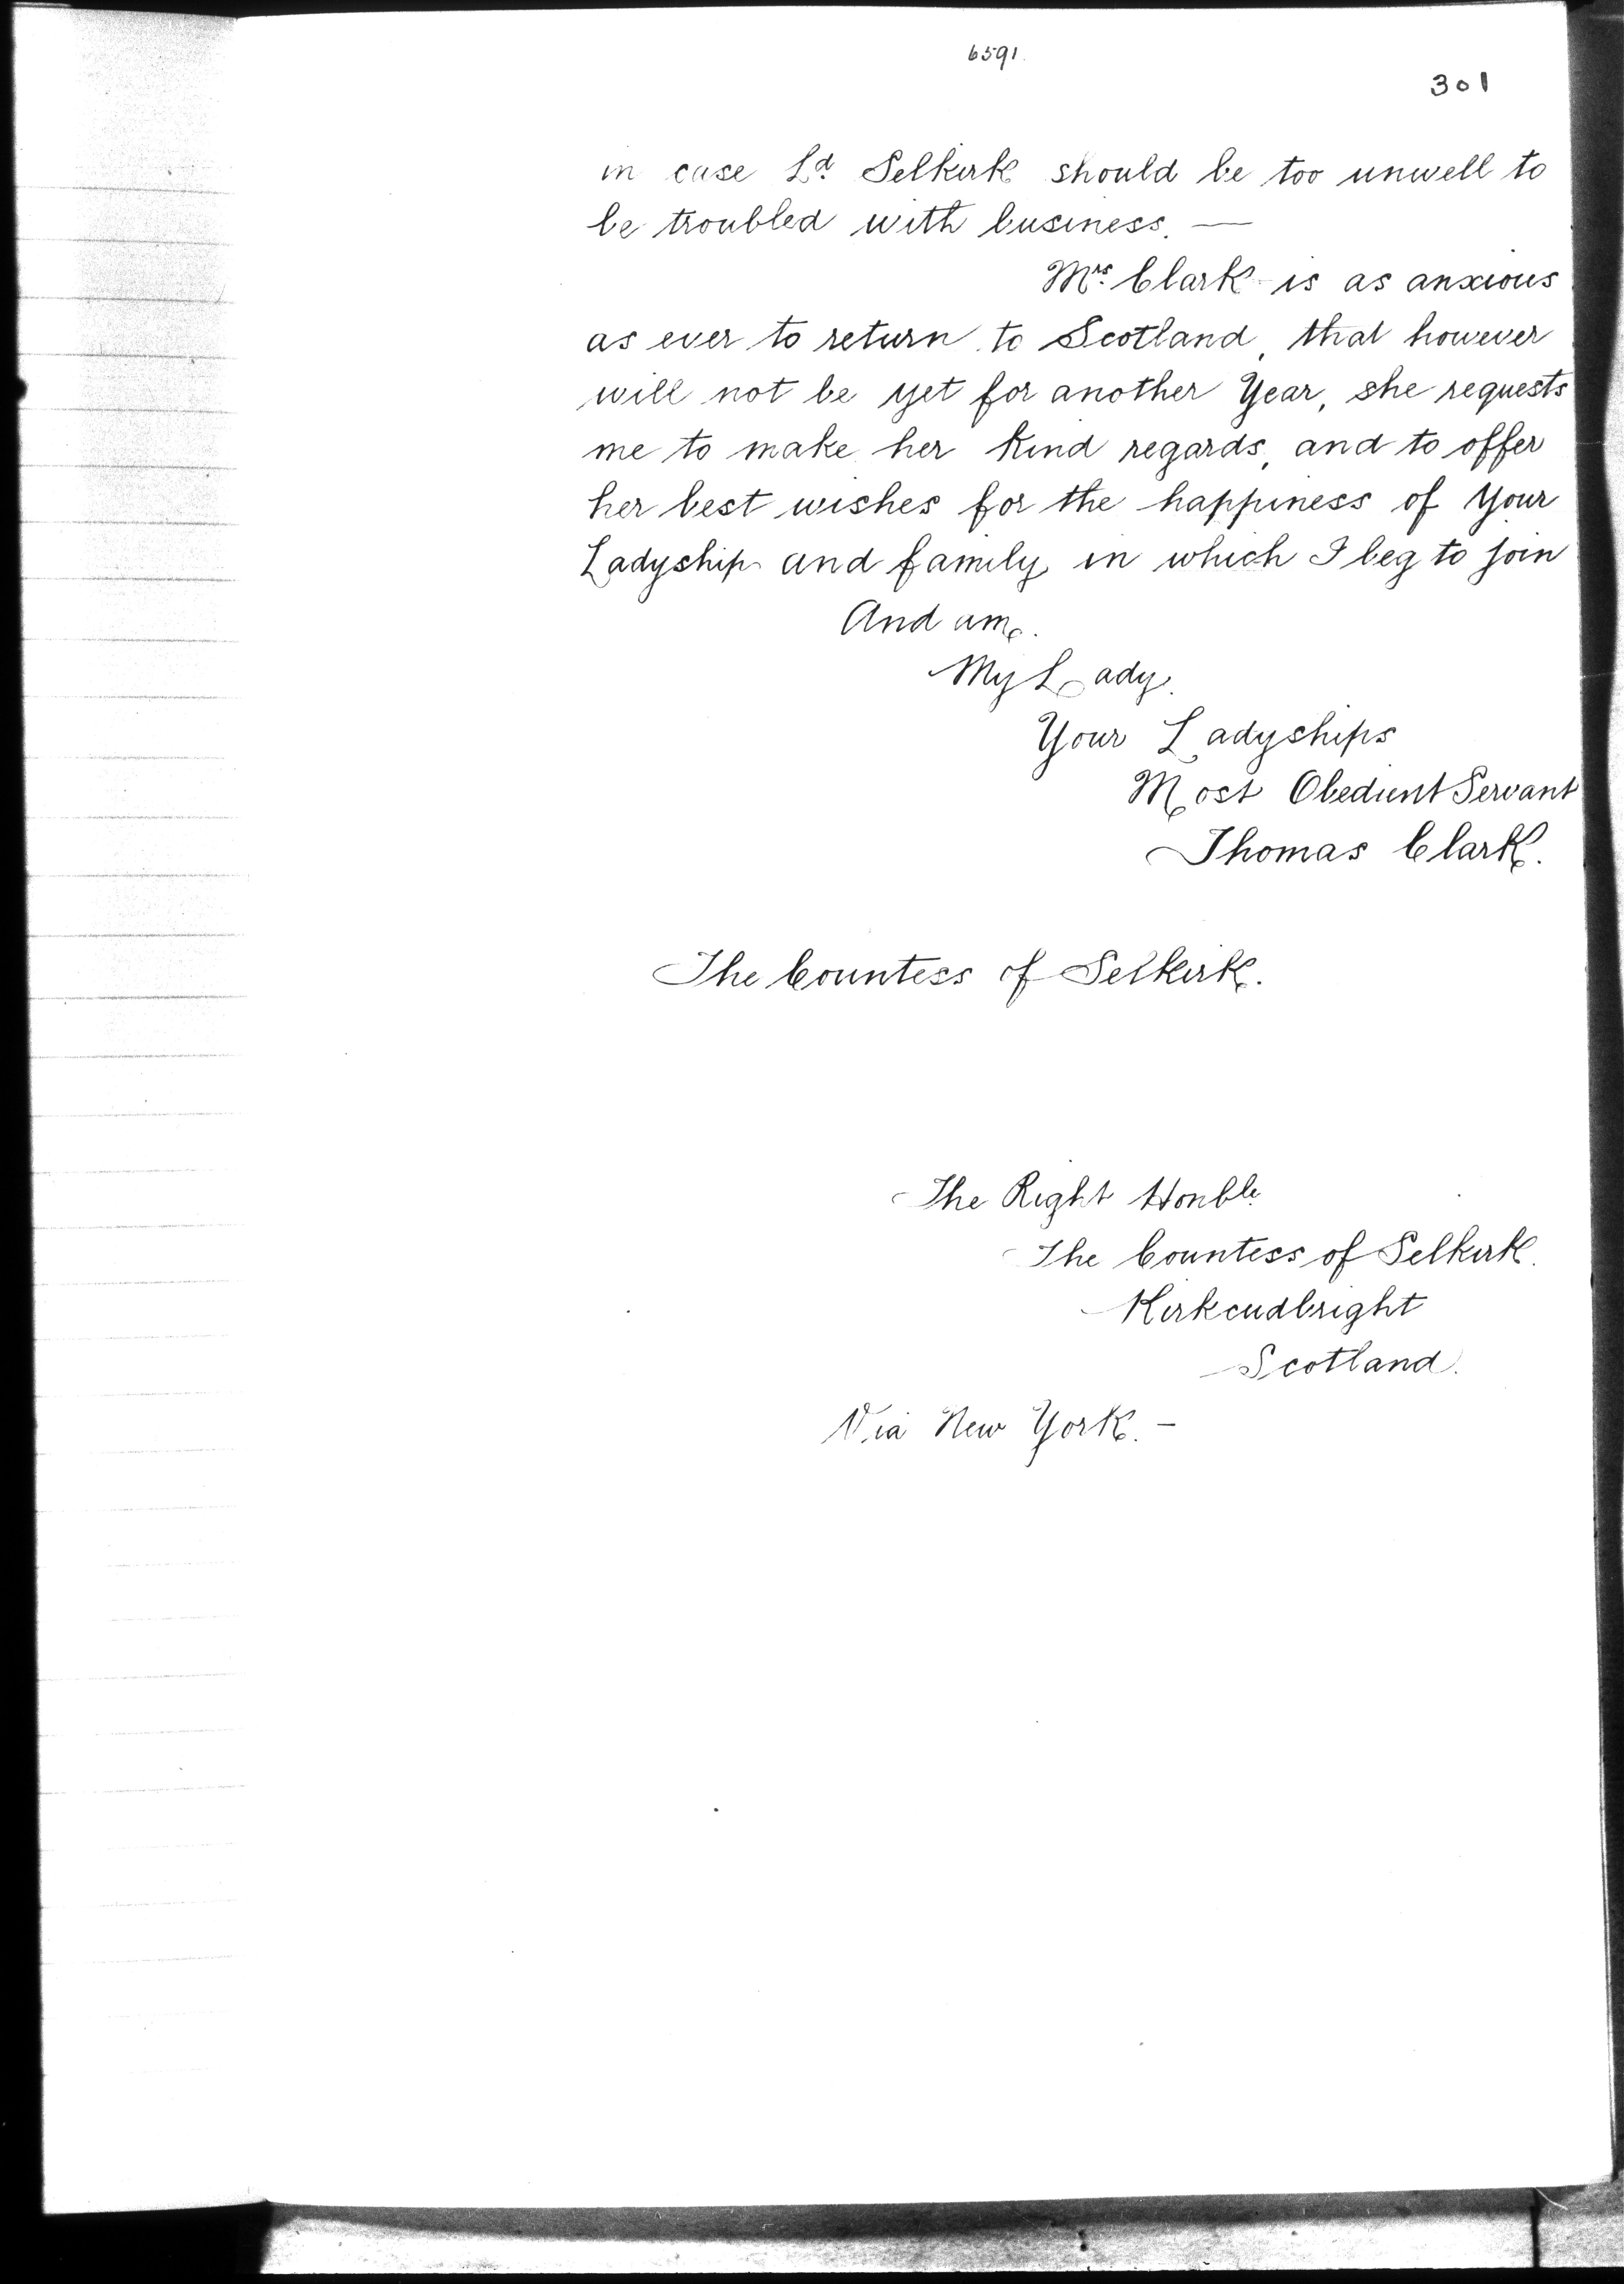 6591.
301
in case Ld. Selkirk should be too unwell to
be troubled with business. —
Mrs. Clark is as anxious
as ever to return to Scotland, that however
will not be yet for another Year, she requests
me to make her kind regards, and to offer
her best wishes for the happiness of Your
Ladyship and family in which I beg to join
And am.
My Lady.
Your Ladyships
Most Obedient Servant
Thomas Clark.
The Countess of Selkirk.
The Right Honble.
The Countess of Selkirk.
Kirkcudbright
Scotland.
Via New York. –